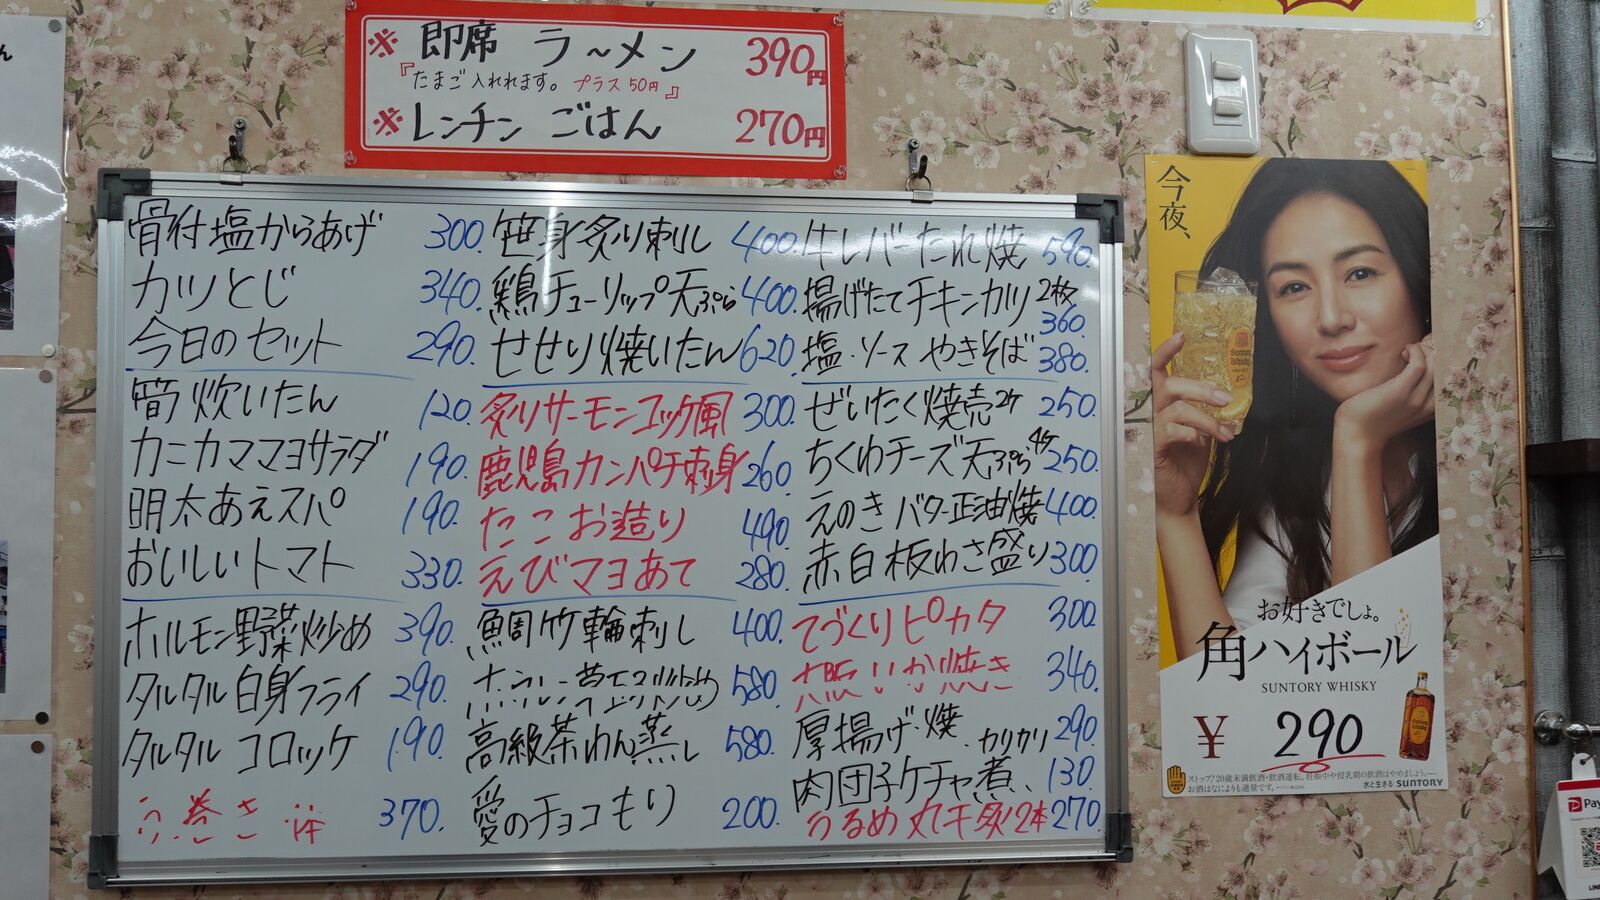 ※即席 ラ～メン 390円
『たまご入れれます。プラス50円』
※レンチン ごはん 270円
骨付塩からあげ 300.
カツとじ 340.
今日のセット 290.
筍炊いたん 120.
カニカママヨサラダ 190.
明太あえスパ 190.
おいしいトマト 330.
ホルモン野菜炒め 390.
タルタル白身フライ 290.
タルタルコロッケ 190.
う巻き 370.
笹身炙り刺し 400.
鶏チューリップ天ぷら 400.
せせり焼いたん 620.
炙りサーモンユッケ風 300.
鹿児島カンパチ刺身 260.
たこお造り 490.
えびマヨあて 280.
鯛竹輪刺し 400.
炒め 580.
高級茶わん蒸し 580.
愛のチョコもり 200.
牛レバーたれ焼 590.
揚げたてチキンカツ2枚 360.
塩・ソースやきそば 380.
ぜいたく焼売2ケ 250.
ちくわチーズ天ぷら4ケ 250.
えのきバター正油焼 400.
赤白板わさ盛り 300.
てづくりピカタ 300.
大阪いか焼き 340.
厚揚げ・焼 カリカリ 290.
肉団子ケチャ煮 130.
うるめ丸干炙り2本 270.
今夜、
お好きでしょ。
角ハイボール
SUNTORY WHISKY
¥290
ストップ!20歳未満飲酒・飲酒運転。妊娠中や授乳期の飲酒はやめましょう。
お酒はなによりも適量です。
水と生きる SUNTORY
Pay
LINE